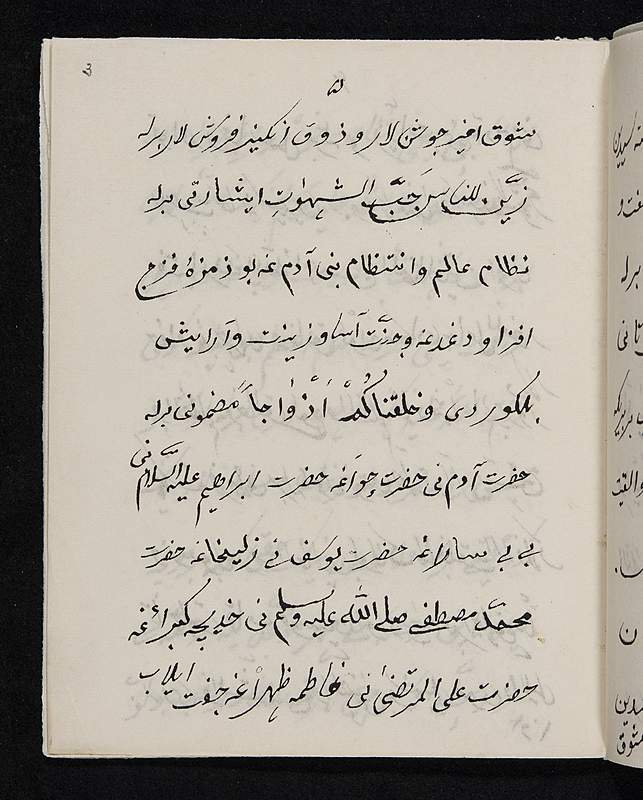 ۵
شوق امیز جوشن لار و ذوق انکیز فروش لار برله
زیّن للناس حبّ الشهوات ایشارتی برله
نظام عالم و انتظام بنی آدم غه بو ذمزهٔ فرح
افزا و دغدغه و جنّت آسا و زینت و آرایش
بلکوردی وخلقناکُمْ اَزْوٰاجاً مضمونی برله
حضرت آدم نی حضرت حوّاغه حضرت ابراهیم علیه السّلام نی
بی بی سالاغه حضرت یوسف نی زلیخاغه حضرت
محمّد مصطفی صلی اللّه علیه وسلم نی خدیجه کبرا غه
حضرت علی المرتضیٰ نی فاطمه ظهراغه جفت ایلاب